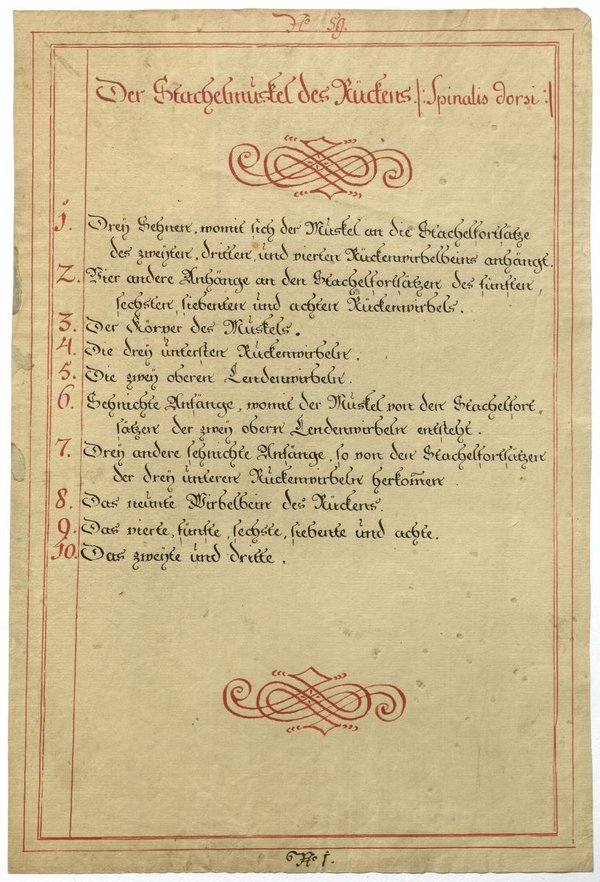 No 59.
Der Stachelmuskel des Rückens /: Spinalis dorsi :/
1. Drey Sehnen, womit sich der Muskel an die Stachelfortsätze
des zweyten, dritten, und vierten Rückenwirbelbeins anhängt.
2. Vier andere Anhänge an den Stachelfortsätzen des fünften,
sechsten, siebenten und achten Rückenwirbels.
3. Der Körper des Muskels.
4. Die drey untersten Rückenwirbeln.
5. Die zwey oberen Lendenwirbeln.
6. Sehnichte Anfänge, womit der Muskel von den Stachelfort-
sätzen der zwey obern Lendenwirbeln entsteht.
7. Drey andere sehnichte Anfänge, so von den Stachelfortsätzen
der drey unteren Rückenwirbeln herkommen.
8. Das neunte Wirbelbein des Rückens.
9. Das vierte, fünfte, sechste, siebente und achte.
10. Das zweyte und dritte.
No 1.